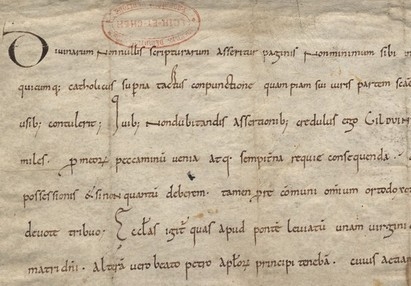 Divinarum Nonnullis scripturarum asseritur paginis Nonminimum sibi
quicumq; catholicus supna tactus conpunctione quampiam sui iuris partem
usib; contulerit; Quib; Nondubitandis assertionib; credulus ego GILDUIN
miles. p meorũ peccaminũ venia atq. sempitna requie consequenda.
possessionis & si non quantũ deberem. tamen p̱ cõmuni omium ortodoxo
devote tribuo. Eccłas igit̃ quas apud ponte leviatũ unam virgini
matri dñi. Alterã vero beato petro apłorũ principi cuius